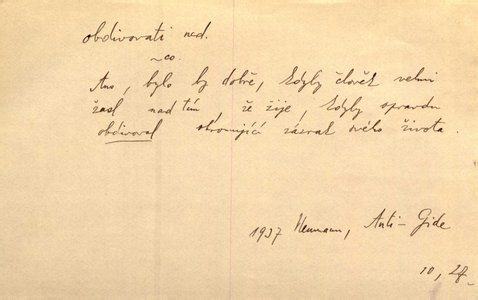 obdivovati nad.
~ co.
Ano, bylo by dobře, kdyby člověk velmi
žasl nad tím že žije, kdyby opravdu
obdivoval ohromující zázrak svého života.
1937 Neumann, Anti-Gide
10, 28.